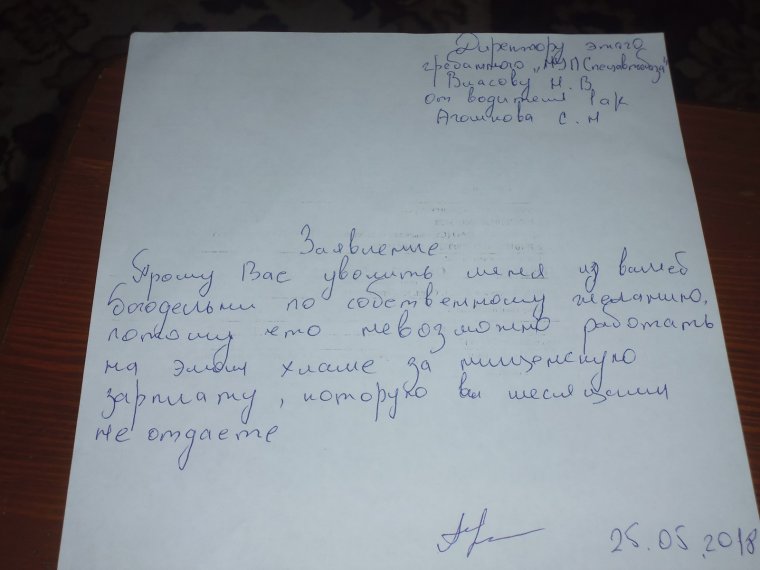 Директору этого
гребанного "МУП Спецавтобаза"
Власову Н. В.
от водителя
Агошкова С. Н
Заявление
Прошу Вас уволить меня из вашей
богодельни по собственному желанию,
потому что невозможно работать
на этом хламе за нищенскую
зарплату, которую вы месяцами
не отдаете
25.05.2018